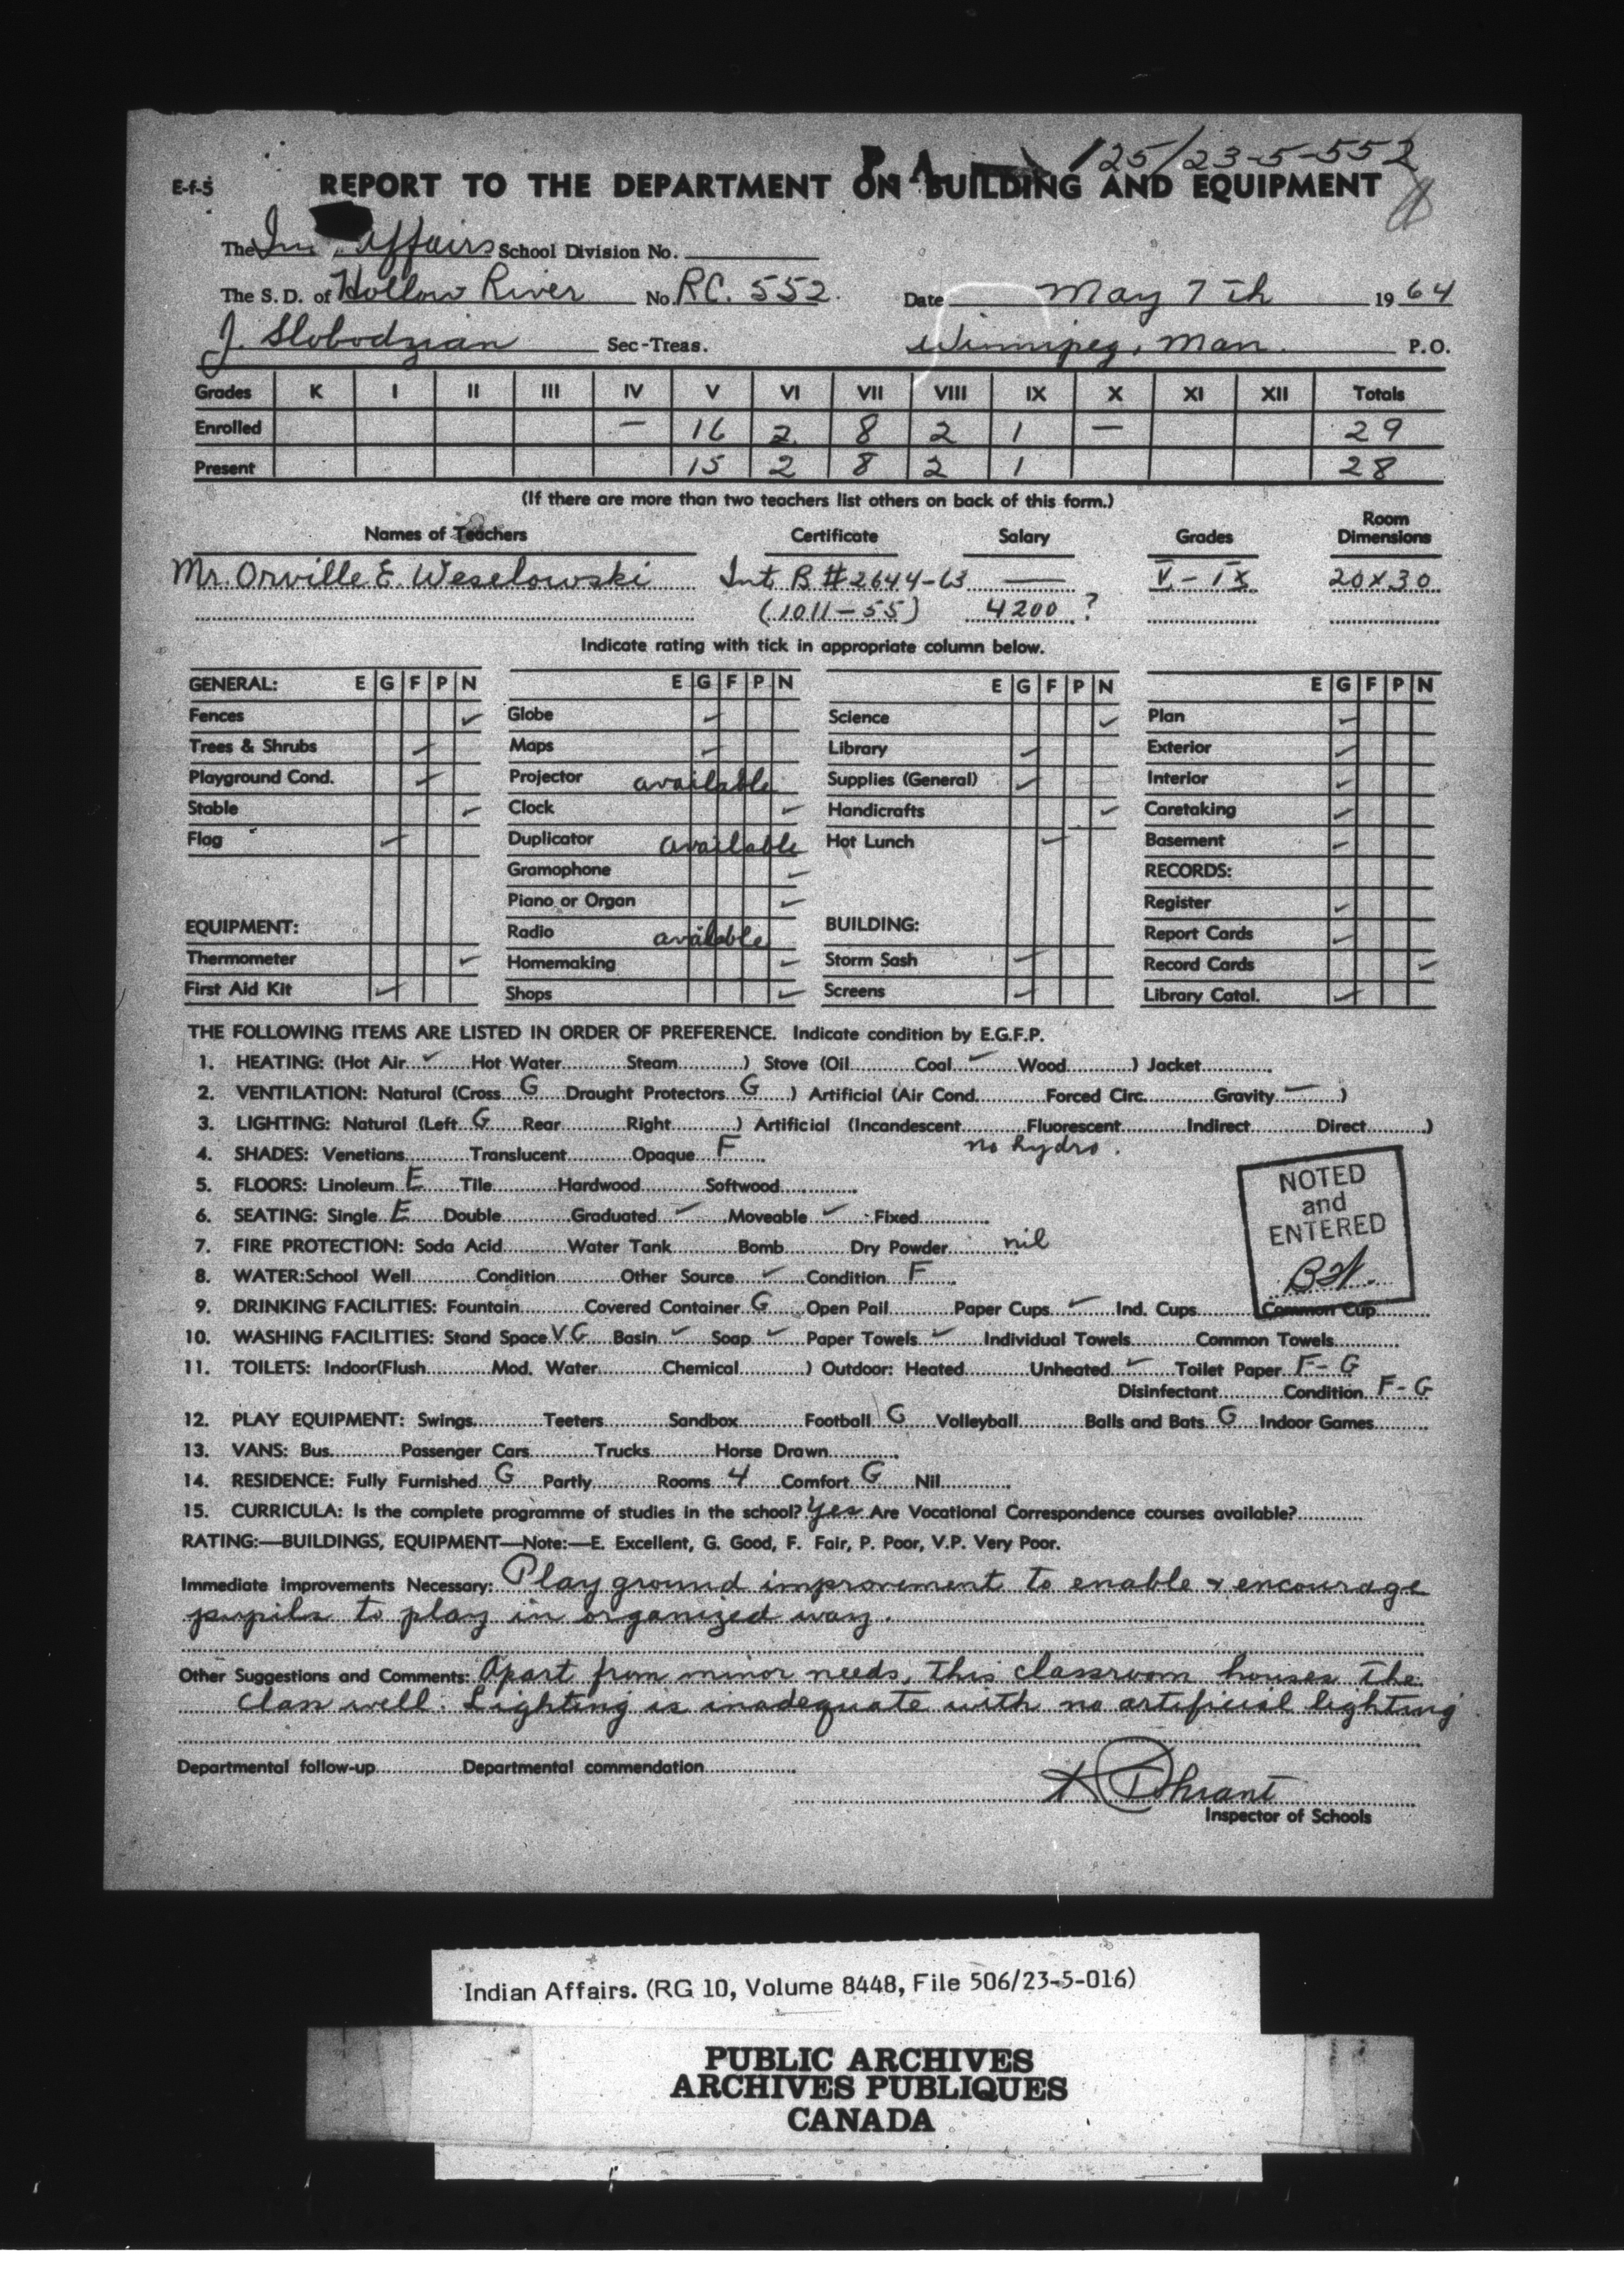 125/23-5-552
E-f-5 REPORT TO THE DEPARTMENT ON BUILDING AND EQUIPMENT
The Affairs School Division No.
The S. D. of Hollow River No. RC. 552. Date May 7th 1964
J. Slobodzian Sec-Treas. Winnipeg, Man. P.O.
Grades K I II III IV V VI VII VIII IX X XI XII Totals
Enrolled — 16 2 8 2 1 — 29
Present 15 2 8 2 1 28
(If there are more than two teachers list others on back of this form.)
Names of Teachers Certificate Salary Grades Room Dimensions
Mr. Orville E. Weselowski Int B #2644-63 — V - IX 20 x 30
(1011-55) 4200 ?
Indicate rating with tick in appropriate column below.
GENERAL: E G F P N E G F P N E G F P N E G F P N
Fences ✓ Globe ✓ Science ✓ Plan ✓
Trees & Shrubs ✓ Maps ✓ Library ✓ Exterior ✓
Playground Cond. ✓ Projector available Supplies (General) ✓ Interior ✓
Stable ✓ Clock ✓ Handicrafts ✓ Caretaking ✓
Flag ✓ Duplicator available Hot Lunch ✓ Basement ✓
Gramophone ✓ RECORDS:
Piano or Organ ✓ Register ✓
EQUIPMENT: Radio available BUILDING: Report Cards ✓
Thermometer ✓ Homemaking ✓ Storm Sash ✓ Record Cards ✓
First Aid Kit ✓ Shops ✓ Screens ✓ Library Catal. ✓
THE FOLLOWING ITEMS ARE LISTED IN ORDER OF PREFERENCE. Indicate condition by E.G.F.P.
1. HEATING: (Hot Air ✓ Hot Water Steam ) Stove (Oil Coal ✓ Wood ) Jacket
2. VENTILATION: Natural (Cross G Draught Protectors G ) Artificial (Air Cond. Forced Circ. Gravity — )
3. LIGHTING: Natural (Left G Rear Right ) Artificial (Incandescent Fluorescent Indirect Direct )
no hydro.
4. SHADES: Venetians Translucent Opaque F
5. FLOORS: Linoleum E Tile Hardwood Softwood
6. SEATING: Single E Double Graduated ✓ Moveable ✓ Fixed
7. FIRE PROTECTION: Soda Acid Water Tank Bomb Dry Powder nil
8. WATER: School Well Condition Other Source ✓ Condition F
NOTED
and
ENTERED
9. DRINKING FACILITIES: Fountain Covered Container G Open Pail Paper Cups ✓ Ind. Cups Common Cup
10. WASHING FACILITIES: Stand Space VG Basin ✓ Soap ✓ Paper Towels ✓ Individual Towels Common Towels
11. TOILETS: Indoor(Flush Mod. Water Chemical ) Outdoor: Heated Unheated ✓ Toilet Paper F-G
Disinfectant Condition F-G
12. PLAY EQUIPMENT: Swings Teeters Sandbox Football G Volleyball Balls and Bats G Indoor Games
13. VANS: Bus Passenger Cars Trucks Horse Drawn
14. RESIDENCE: Fully Furnished G Partly Rooms 4 Comfort G Nil
15. CURRICULA: Is the complete programme of studies in the school? Yes Are Vocational Correspondence courses available?
RATING:—BUILDINGS, EQUIPMENT—Note:—E. Excellent, G. Good, F. Fair, P. Poor, V.P. Very Poor.
Immediate Improvements Necessary: Playground improvement to enable & encourage
pupils to play in organized way.
Other Suggestions and Comments: Apart from minor needs, this classroom houses the
class well. Lighting is inadequate with no artificial lighting
Departmental follow-up Departmental commendation
Inspector of Schools
Indian Affairs. (RG 10, Volume 8448, File 506/23-5-016)
PUBLIC ARCHIVES
ARCHIVES PUBLIQUES
CANADA